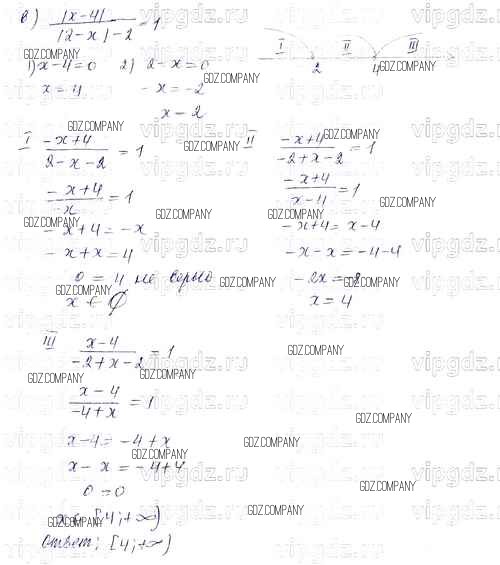 в) |x-4| / (|2-x|-2) = 1
I II III
2 4
1) x-4=0 2) 2-x=0
x=4 -x=-2
x=2
I (-x+4)/(2-x-2) = 1
(-x+4)/(-x) = 1
-x+4=-x
-x+x=4
0=4 не верно
x ∈ ∅
II (-x+4)/(-2+x-2) = 1
(-x+4)/(x-4) = 1
-x+4=x-4
-x-x=-4-4
-2x=-8
x=4
III (x-4)/(-2+x-2) = 1
(x-4)/(-4+x) = 1
x-4=-4+x
x-x=-4+4
0=0
x ∈ [4;+∞)
Ответ: [4;+∞)
vipgdz.ru
GDZ.COMPANY